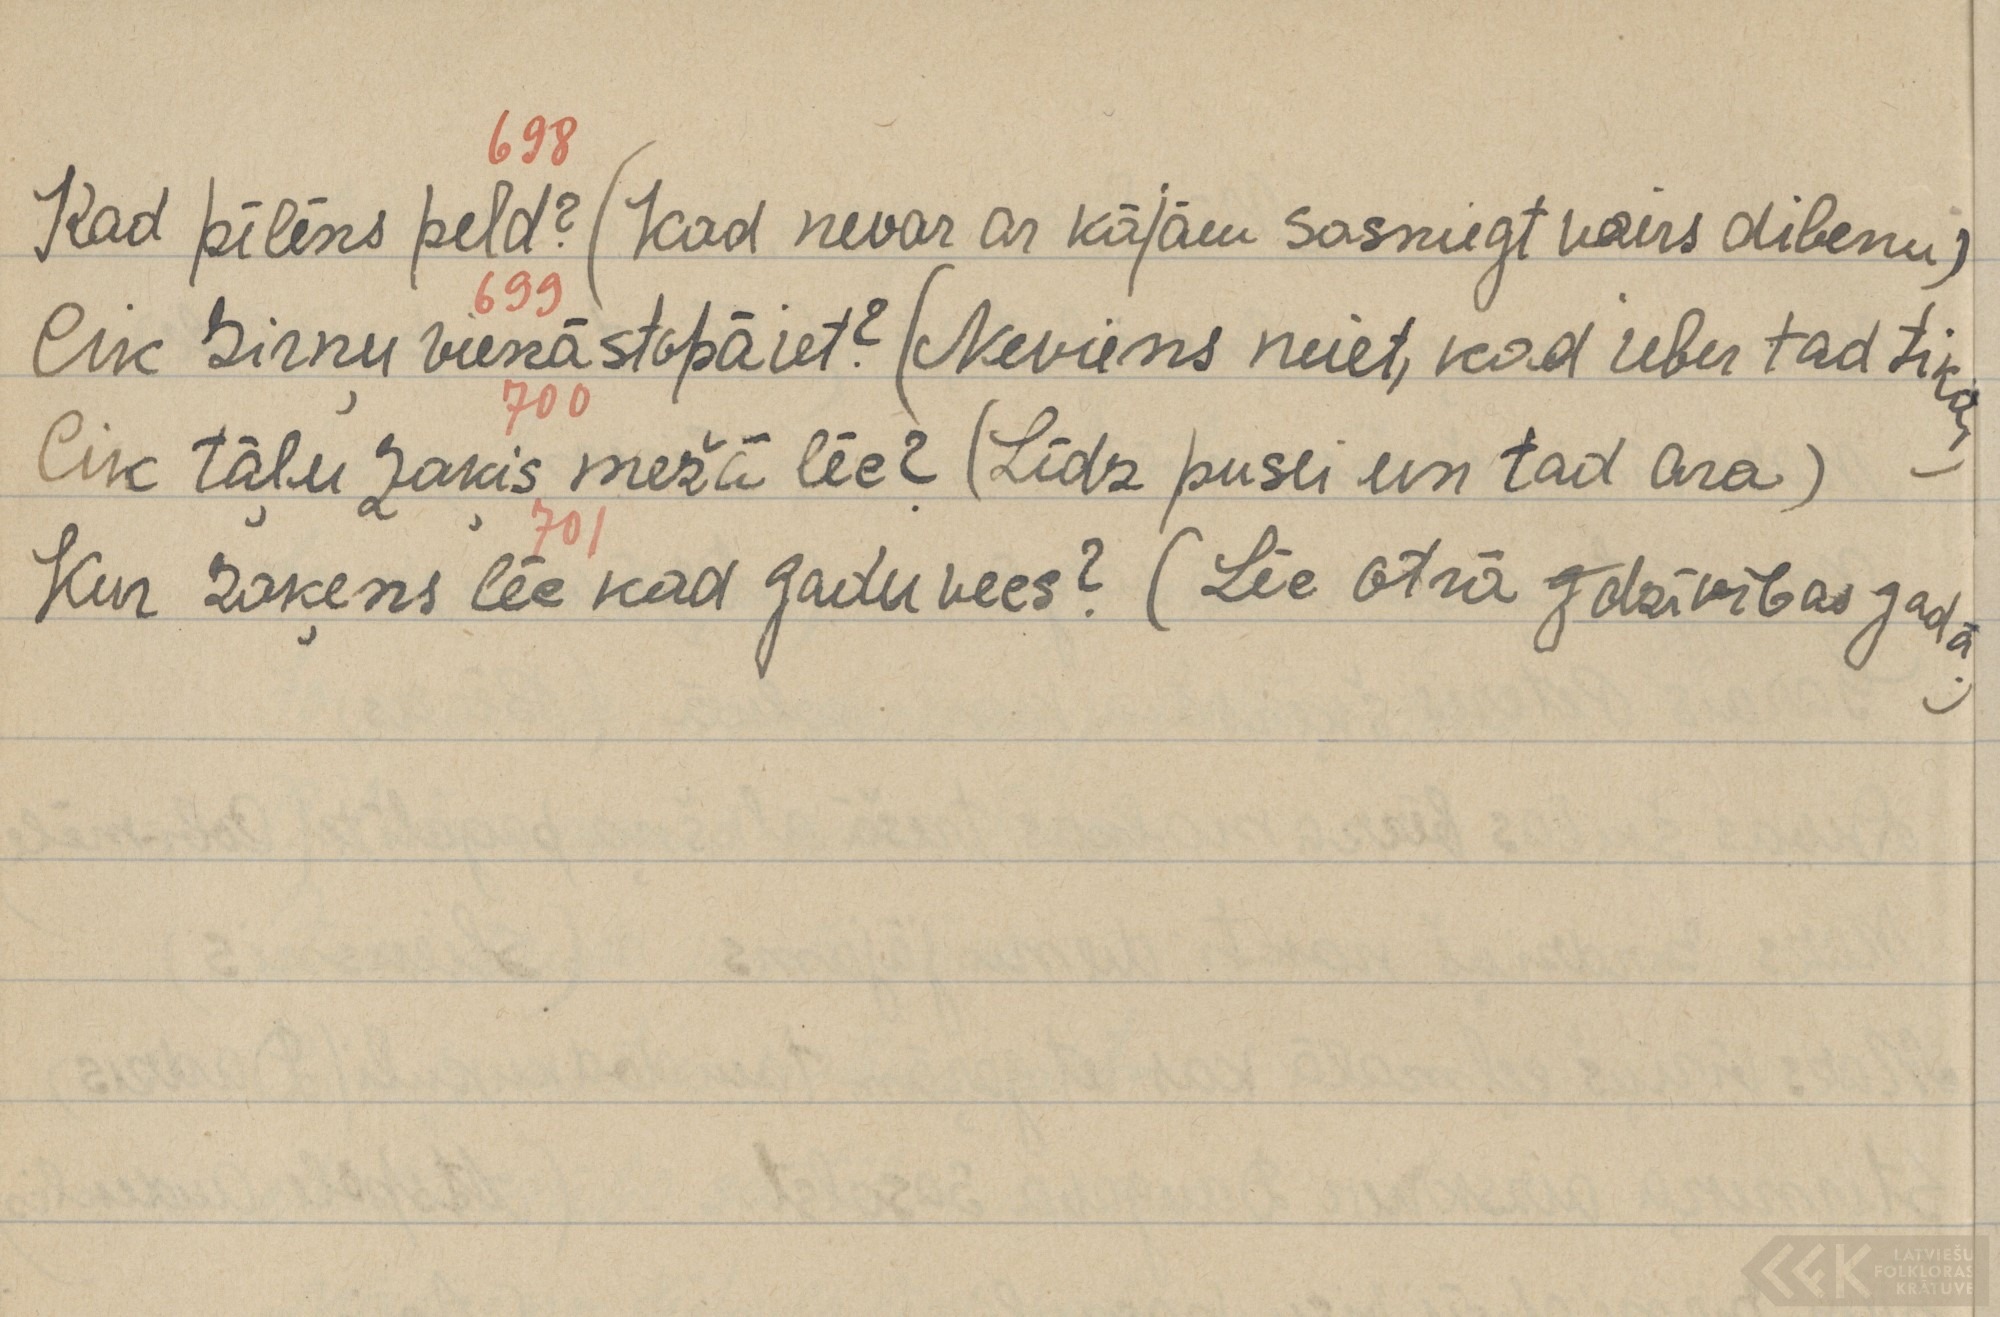 698
Kad pīlēns peld? (Kad nevar ar kājām sasniegt vairs dibenu)
699
Cik zirņu vienā stopā iet? (Neviens neiet, kad ieber tad tikai)
700
Cik tāļu zaķis mežā lēc? (Līdz pusei un tad āra)
701
Kur zaķens lēc kad gadu vecs? (Lēc otrā dzīvības gadā.)
LATVIEŠU
FOLKLORAS
KRĀTUVE